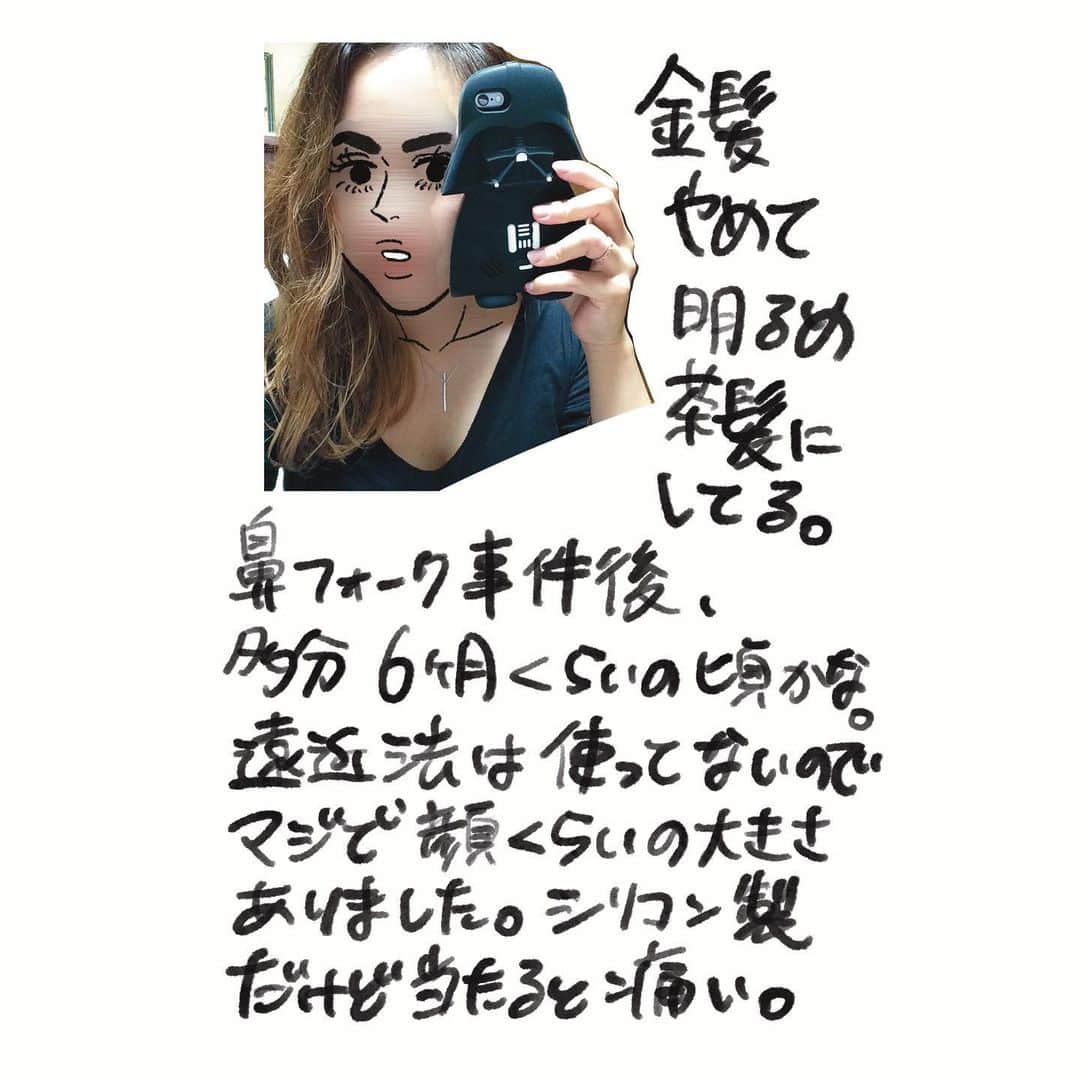 金髪
やめて
明るめ
茶髪に
してる。
鼻フォーク事件後、
多分6ヶ月くらいの頃かな。
遠近法は使ってないので
マジで顔くらいの大きさ
ありました。シリコン製
だけど当たると痛い。